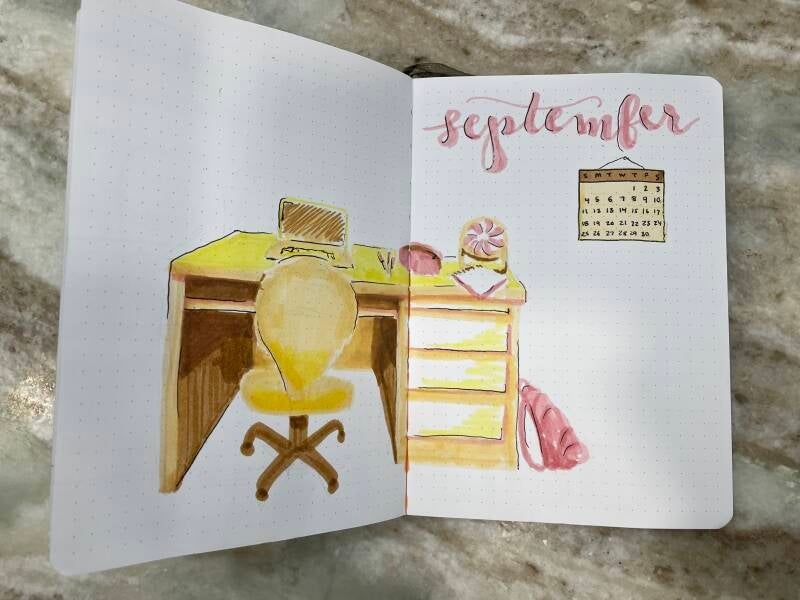 september
S M T W T F S
1 2 3
4 5 6 7 8 9 10
11 12 13 14 15 16 17
18 19 20 21 22 23 24
25 26 27 28 29 30